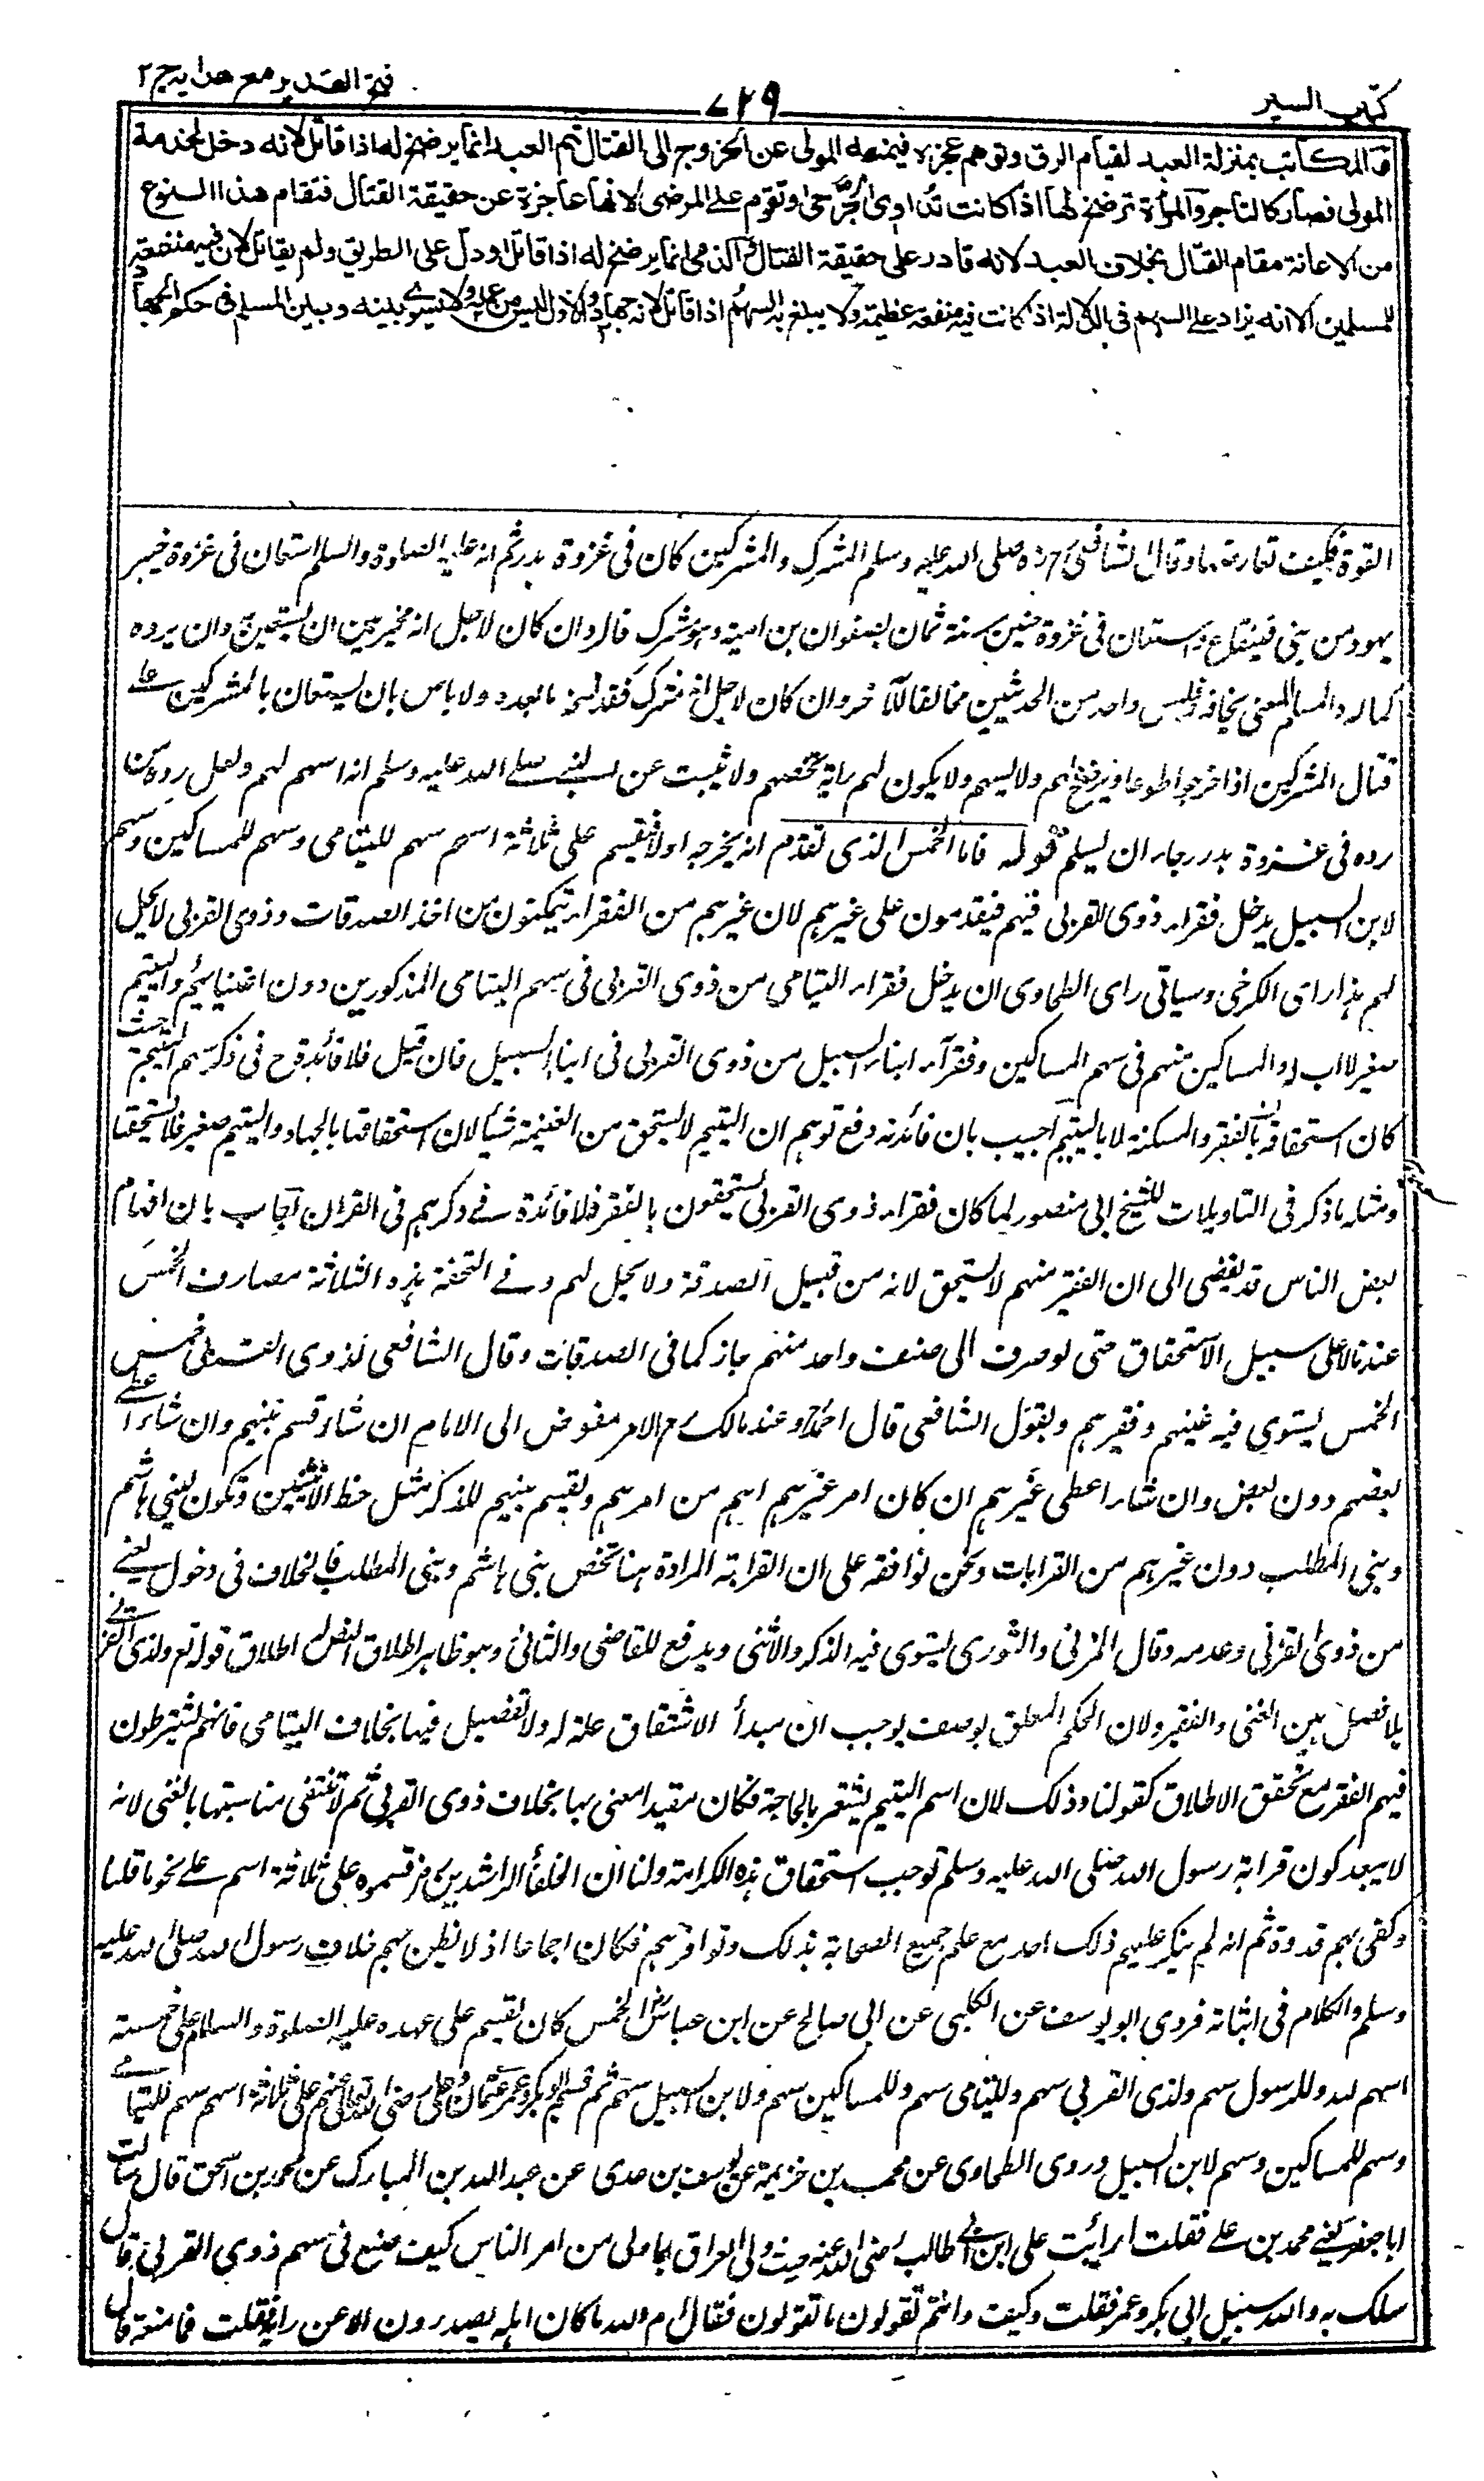 كتاب السير
٧٢٩
فتح القدير مع هدايه ج ٢
والمكاتب بمنزلة العبد لقيام الرق وتوهم عجزه فيمنعه المولى عن الخروج الى القتال ثم العبد انما يرضخ له اذا قاتل لانه دخل لخدمة
المولى فصار كالتاجر والمرأة ترضخ لها اذا كانت تداوى الجرحى وتقوم على المرضى لانها عاجزة عن حقيقة القتال فتقام هذا النوع
من الاعانة مقام القتال بخلاف العبد لانه قادر على حقيقة القتال والذمى انما يرضخ له اذا قاتل او دل على الطريق ولم يقاتل لان فيه منفعة
للمسلمين الا انه يزاد على السهم فى الدلالة اذا كانت فيه منفعة عظيمة ولا يبلغ به السهم اذا قاتل لانه جهاد والاول ليس من عمله ولا يسوى بينه وبين المسلم فى حكم الجهاد
القوة فكيف تعارضه وقال الشافعى رده صلى الله عليه وسلم المشرك والمشركين كان فى غزوة بدر ثم انه عليه الصلوة والسلام استعان فى غزوة خيبر
يهود من بنى قينقاع واستعان فى غزوة حنين سنة ثمان بصفوان بن امية وهو مشرك قال وان كان لاجل انه مخير بين ان يستعين وان يرده
كما له رد المسلم لمعنى يخافه فليس واحد من الحديثين مخالفا للآخر وان كان لاجل انه مشرك فقد نسخه ما بعده ولا باس بان يستعان بالمشركين على
قتال المشركين اذا خرجوا طوعا ويرضخ لهم ولا يسهم ولا يكون لهم راية تخصهم ولا يثبت عن النبى صلى الله عليه وسلم انه اسهم لهم ولعل رده من
رده فى غزوة بدر رجاء ان يسلم قوله فاما الخمس الذى تقدم انه يخرجه اولا فيقسم على ثلاثة اسهم سهم لليتامى وسهم للمساكين وسهم
لابن السبيل يدخل فقراء ذوى القربى فيهم فيقدمون على غيرهم لان غيرهم من الفقراء يتمكنون من اخذ الصدقات وذوى القربى لا يحل
لهم هذا راى الكرخى وسياتى راى الطحاوى ان يدخل فقراء اليتامى من ذوى القربى فى سهم اليتامى المذكورين دون اغنيائهم واليتيم
صغير لا اب له والمساكين منهم فى سهم المساكين وفقراء ابناء السبيل من ذوى القربى فى ابناء السبيل فان قيل فلا فائدة ح فى ذكر سهم اليتيم حيث
كان استحقاقه بالفقر والمسكنة لا باليتم اجيب بان فائدته دفع توهم ان اليتيم لا يستحق من الغنيمة شيئا لان استحقاقها بالجهاد واليتيم صغير فلا يستحقها
ومثله ما ذكر فى التاويلات للشيخ ابى منصور لما كان فقراء ذوى القربى يستحقون بالفقر فلا فائدة فى ذكرهم فى القران اجاب بان افهام
بعض الناس قد يفضى الى ان الفقير منهم لا يستحق لانه من قبيل الصدقة ولا يحل لهم وفى التحفة هذه الثلاثة مصارف الخمس
عندنا لا على سبيل الاستحقاق حتى لو صرف الى صنف واحد منهم جاز كما فى الصدقات وقال الشافعى لذوى القربى خمس
الخمس يستوى فيه غنيهم وفقيرهم وبقول الشافعى قال احمد وعند مالك رح الامر مفوض الى الامام ان شاء قسم بينهم وان شاء اعطى
بعضهم دون بعض وان شاء اعطى غيرهم ان كان امر غيرهم اهم من امرهم ويقسم بينهم للذكر مثل حظ الانثيين وتكون لبنى هاشم
وبنى المطلب دون غيرهم من القرابات ونحن نوافقه على ان القرابة المرادة هنا تخص بنى هاشم وبنى المطلب فالخلاف فى دخول الغنى
من ذوى القربى وعدمه وقال المزنى والثورى يستوى فيه الذكر والانثى ويدفع للقاصى والدانى وهو ظاهر اطلاق النص له اطلاق قوله تع ولذى القربى
بلا فصل بين الغنى والفقير ولان الحكم المعلق بوصف يوجب ان مبدأ الاشتقاق علة له ولا تفصيل فيها بخلاف اليتامى فانهم يشترطون
فيهم الفقر مع تحقق الاطلاق كقولنا وذلك لان اسم اليتيم يشعر بالحاجة فكان مقيدا معنى بها بخلاف ذوى القربى ثم لا تنتفى مناسبتها بالغنى لانه
لا يبعد كون قرابة رسول الله صلى الله عليه وسلم توجب استحقاق هذه الكرامة ولنا ان الخلفاء الراشدين رض قسموه على ثلاثة اسهم على نحو ما قلنا
وكفى بهم قدوة ثم انه لم ينكر عليهم ذلك احد مع علم جميع الصحابة بذلك وتوافرهم فكان اجماعا اذ لا يظن بهم خلاف رسول الله صلى الله عليه
وسلم والكلام فى اثباته فروى ابو يوسف عن الكلبى عن ابى صالح عن ابن عباس رض الخمس كان يقسم على عهده عليه الصلوة والسلام على خمسة
اسهم لله وللرسول سهم ولذى القربى سهم ولليتامى سهم وللمساكين سهم ولابن السبيل سهم ثم قسم ابو بكر وعمر وعثمان وعلى رضى الله تعالى عنهم على ثلاثة اسهم سهم لليتامى
وسهم للمساكين وسهم لابن السبيل وروى الطحاوى عن محمد بن خزيمة عن يوسف بن عدى عن عبد الله بن المبارك عن محمد بن اسحق قال سالت
ابا جعفر يعنى محمد بن على فقلت ارايت على ابن ابى طالب رضى الله عنه حيث ولى العراق وما ولى من امر الناس كيف صنع فى سهم ذوى القربى قال
سلك به والله سبيل ابى بكر وعمر فقلت وكيف وانتم تقولون ما تقولون فقال ام والله ما كان اهله يصدرون الا عن رايه فقلت فما منعه قال